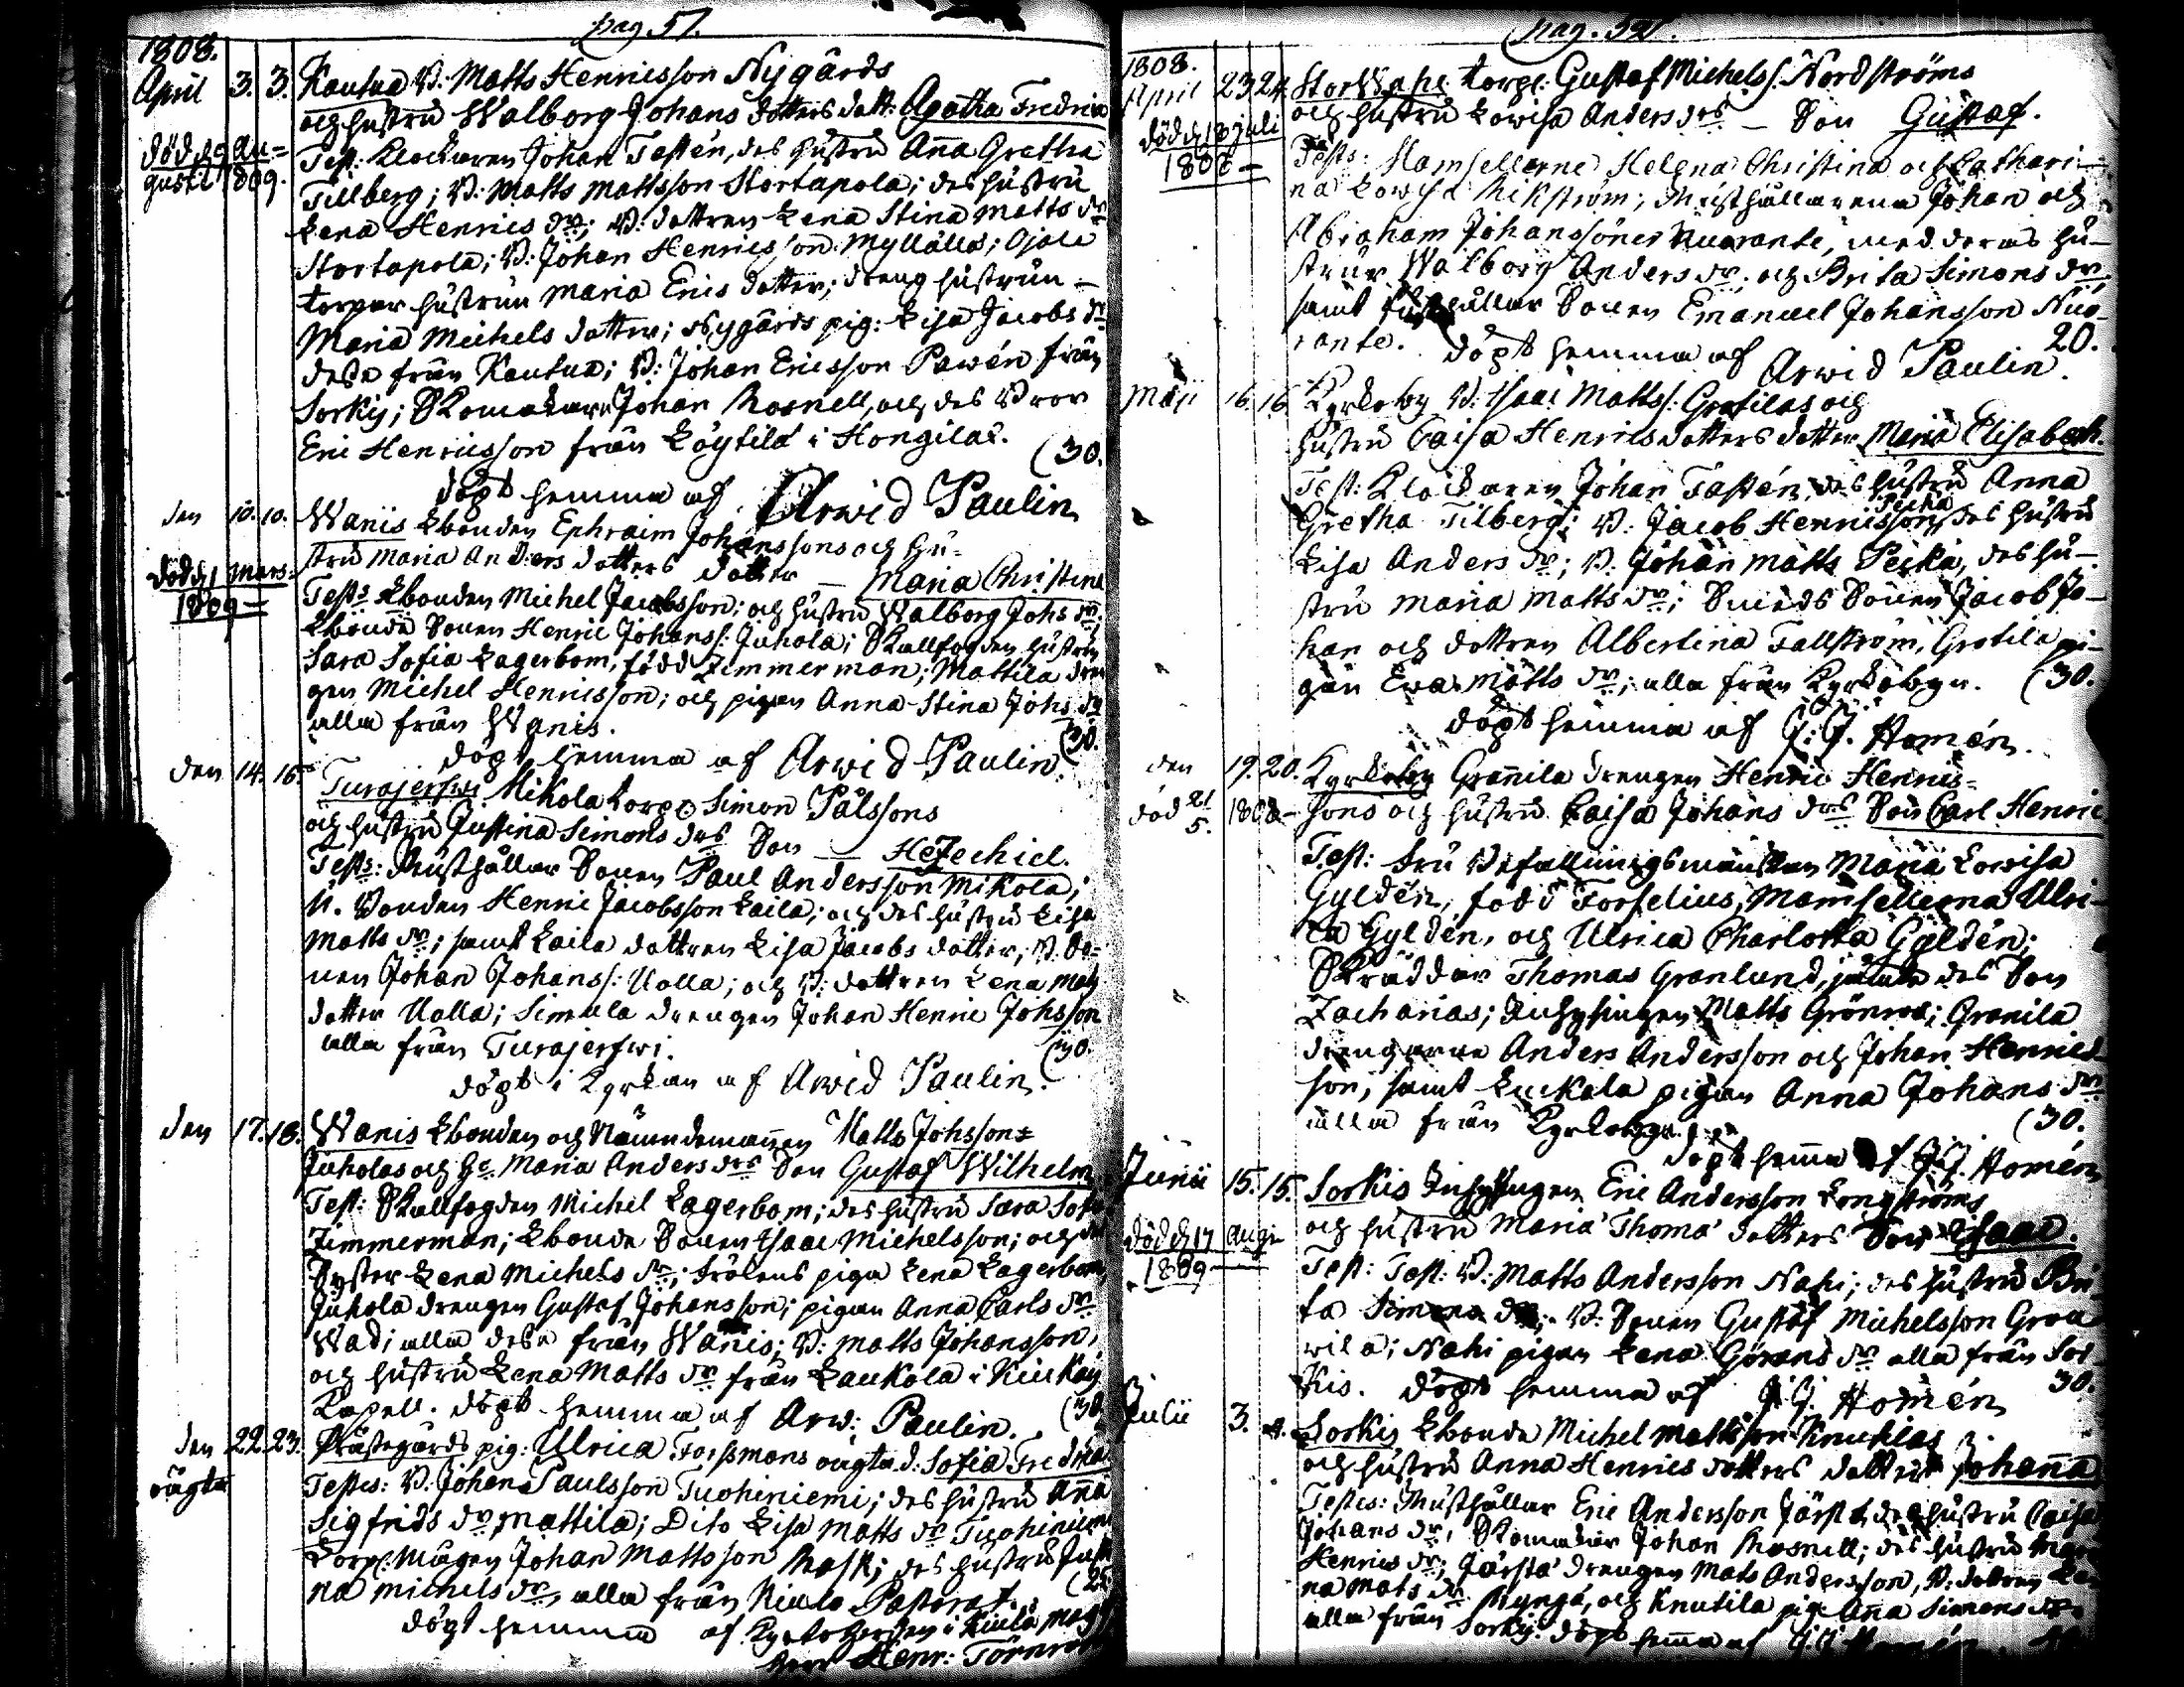 pag. 51.
1808.
April 3. 3. Kautua B: Matts Henricsson Nygårds
och hustru Walborg Johans dotters dott: Agatha Fredrica
död d 9 Au=
gusti 1809.
Test: Klockaren Johan Tastén, des hustru Anna Gretha
Tillberg; B: Matts Mattsson Stortapola; des hustru
Lena Henrics dr; B: dottren Lena Stina Matts dr
Stortapola; B: Johan Henricsson Myllälä; Ojala
torpar hustrun Maria Erics dotter; dreng hustrun
Maria Michels dotter; Nygårds pig: Lisa Jacobs dr
desa från Kautua; B: Johan Ericsson Pawén från
Sorkis; Skomakarn Johan Rosnell, och des Bror
Eric Henricsson från Löytilä i Hongilax. (30.
döpt hemma af Arwid Paulin
den 10. 10. Wanis Lbonden Ephraim Johanssons och hu=
stru Maria Anders dotters dotter — Maria Christina
död d 1 Mars
1809 —
Test: Lbonden Michel Jacobsson; och hustru Walborg Johs dr;
Lbonde Sonen Henric Johanss: Juhola; Skallfogden hustru
Sara Sofia Lagerbom, född Zimmerman; Mattila dren
gen Michel Henricsson; och pigan Anna Stina Johs dr
alla från Wanis. (30.
döpt hemma af Arwid Paulin.
den 14. 16. Turajerfwi Mikola torp: Simon Pålssons
och hustru Justina Simons drs Son — Hezechiel.
Test: Rusthållar Sonen Paul Andersson Mikola;
N. Bonden Henric Jacobsson Laila; och des hustru Lisa
Matts dr; samt Laila dottren Lisa Jacobs dotter; B. So=
nen Johan Johanss: Uolla; och B: dottren Lena Mats
dotter Uolla; Simula drengen Johan Henric Johsson
alla från Turajerfwi. (30.
döpt i Kyrkan af Arwid Paulin.
den 17. 18. Wanis Lbonden och Nämndemannen Matts Johssons
Juholas och H: Maria Anders drs Son Gustaf Wilhelm
Test: Skallfogden Michel Lagerbom; des hustru Sara Sofia
Zimmerman; Lbonde Sonen Isaac Michelsson; och
Syster Lena Michels dr; frölens piga Lena Lagerbom
Juhola drengen Gustaf Johansson; pigan Anna Carls dr
Wadi alla desa från Wanis; B: Matts Johansson,
och hustru Lena Matts dr från Laukola i Kiukais
Kapell. döpt hemma af Arw: Paulin. (30.
den 22. 23. Prästegårds pig: Ulrica Forssmans oägta d. Sofia Fredrica
oägta
Testes: B: Johan Paulsson Tuohiniemi; des hustru Anna
Sigfrids dr Mattila; Dito Lisa Matts dr Tuohiniemi
torp: Mågen Johan Mattsson Rask; des hustru Justi
na Michels dr, alla från Kiulo Pastorat. (25
döpt hemma af Kyrkoherden i Kiulo Mag
Herr Henr: Törnroos
pag. 52.
1808.
April 23 24. StorWahe torp: Gustaf Michelss: Nordströms
och hustru Lowisa Anders drs — Son Gustaf.
död d 18 juli
1808 —
Tests: Mamsellerne Helena Christina och Cathari-
na Lowisa Wikström; Rusthållarena Johan och
Abraham Johanssöner Nuorante, med deras hu-
strur Walborg Anders dr: och Brita Simons dr,
samt Rusthållar Sonen Emanuel Johansson Nuo-
rante. döpt hemma af Arwid Paulin. 20.
Maji 16. 16. Kyrkoby B: Isaac Matts: Grotilas och
hustru Caisa Henrics dotters dotter Maria Elisabeth.
Test: Klockaren Johan Tastén, des hustru Anna
Gretha Tilberg; B: Jacob Henricsson Pecka, des hustru
Lisa Anders dr; B. Johan Matts Pecka, des hu-
stru Maria Matts dr; Smeds Sonen Jacob Jo-
han och dottren Albertina Fallström, Grotila pi-
gan Ewa Matts dr; alla från Kyrkobyn. (30.
döpt hemma af J. J. Homén.
den 19. 20. Kyrkoby Grannila drengen Henric Henrics-
död 21/5. 1808 — sons och hustru Caisa Johans drs Son Carl Henric
Test: Fru Befallningsmanskan Maria Lowisa
Gyldén, född Forselius, Mamsellerna Ulri-
ca Gyldén, och Ulrica Charlotta Gyldén;
Skräddar Thomas Granlund, jämte des Son
Zacharias; Inhysingen Matts Grönroos; Granila
drengarne Anders Andersson och Johan Henrics-
son, samt Luckala pigan Anna Johans dr
alla från Kyrkobyn. (30.
döpt hemma af J. J. Homén
Junii 15. 15. Sorkis Inhysingen Eric Andersson Longströms
och hustru Maria Thoma dotters Son Isaac.
död d 17 Augu
1809
Test: Test: B: Matts Andersson Nahi; des hustru Bri-
ta Simons dr; B: Sonen Gustaf Michelsson Groa-
wila; Nahi pigan Lena Görans dr alla från Sor-
kis. döpt hemma af J. J. Homén 30.
Julii 3. 4. Sorkis Lbonde Michel Mattsson Knutilas
och hustru Anna Henrics dotters dotter Johanna
Testes: Rusthållar Eric Andersson Järstä, des hustru Caisa
Johans dr, Skomakar Johan Rosnell; des hustru
Henrics dr; Järstä drengen Mats Andersson, B: dottren
na Mats dr Rynga, och Knutila pig: Anna Simons dr.
alla från Sorkis. döpt hemma af J J Homén